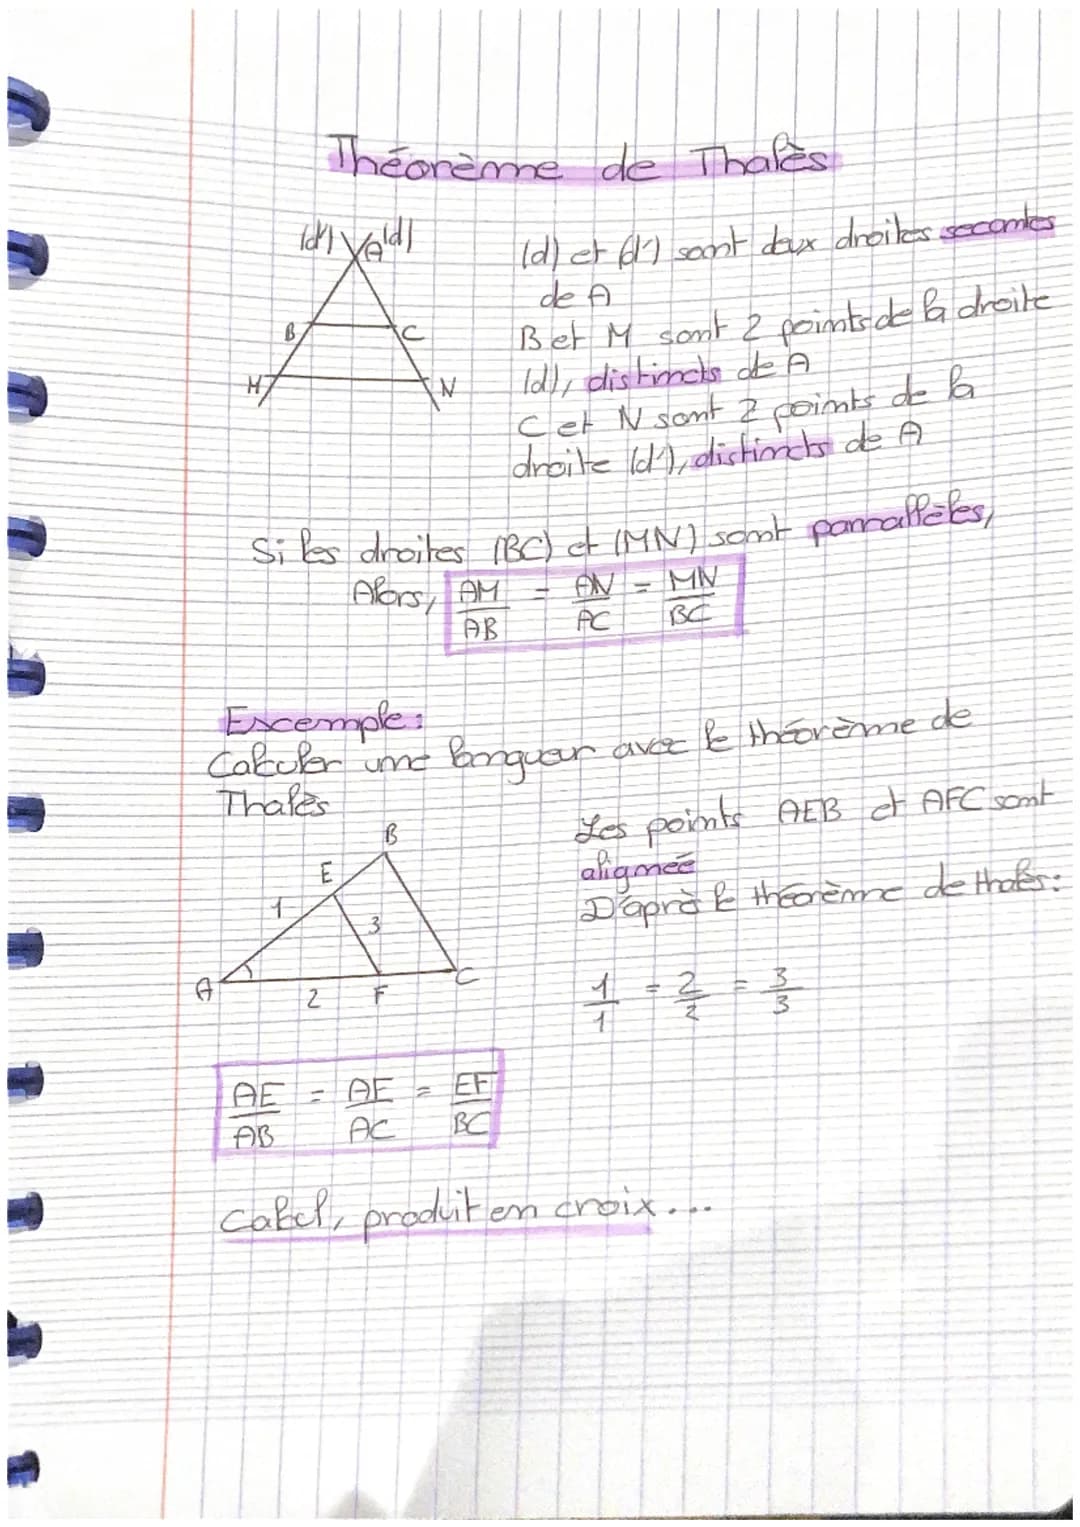 Théorème de Thalès
(d') A (d)
B C
M N
(d) et (d') sont deux droites secantes
de A
B et M sont 2 points de la droite
(d), distincts de A
C et N sont 2 points de la
droite (d'), distincts de A
Si les droites (BC) et (MN) sont parrallèles,
Alors, AM/AB = AN/AC = MN/BC
Excemple:
Calculer une longueur avec le théorème de
Thalès
B
E
1
3
A 2 F C
Les points AEB et AFC sont
alignée
D'après le théorème de thalès:
1/1 = 2/2 = 3/3
AE/AB = AF/AC = EF/BC
Calcl, produit en croix...